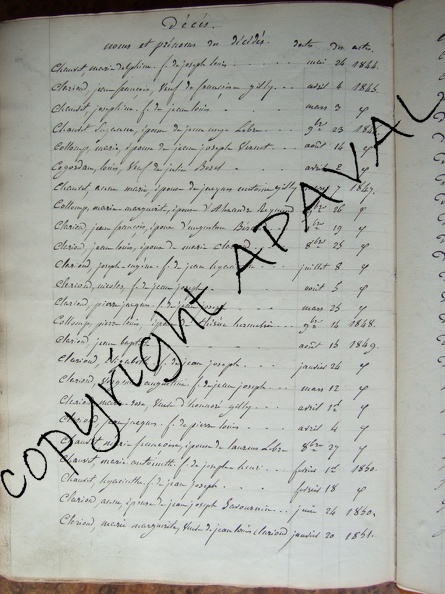 Décès.
noms et prénoms des décédés. date des actes.
Chauvet, marie delphine f. de joseph louis mai 26 1844.
Clariond, jean françois, Veuf de françoise gilly avril 4 1845
Chauvet, josephine f. de jean louis mars 3 φ
Chauvet épouse de jean 9bre 23 1846.
Collomp, marie, épouse de jean joseph août 14 φ
Cogordan, louis, Veuf de julie avril 2 φ
Chauvet, anne marie, épouse de jacques antoine gilly 7 1847.
Collomp, marie marguerite, épouse d'Alexandre 26 φ
Clariond, jean françois, époux d'augustine 19 φ
Clariond, jean louis, époux de marie 8bre 23 φ
Clariond, joseph eugène f. de jean hyacinthe juillet 8 φ
Clariond, nicolas, f. de jean joseph août 5 φ
Clariond, pierre jacques f. de jean joseph mars 25 φ
Collomp, pierre louis, époux de 9bre 14 1848.
Clariond, jean août 13 1849.
Clariond, f. de jean joseph janvier 24 φ
Clariond, augustin f. de jean joseph mars 12 φ
Clariond, marie rose, Veuve d'honoré gilly avril 1er φ
Clariond, jean jacques f. de pierre louis avril 4 φ
Chauvet, marie françoise, épouse de laurent 8bre 27 φ
Chauvet, marie antoinette f. de joseph février 1er 1850.
Chauvet, hyacinthe f. de jean joseph février 18 φ
Clariond, anne, épouse de jean joseph juin 24 1850.
Clariond, marie marguerite, Veuve de jean louis Clariond janvier 20 1851.
copyright APAVAL